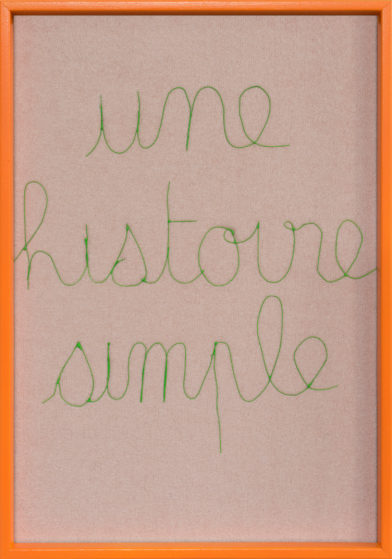 une
histoire
simple